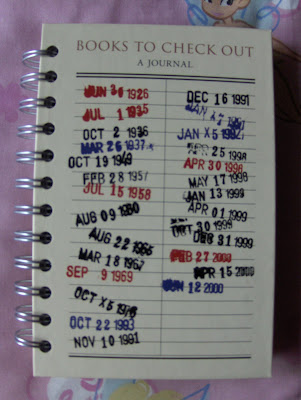 BOOKS TO CHECK OUT
A JOURNAL
JUN 1926
JUL 1 1935
OCT 2 1936
MAR 26 1937
OCT 19 1949
FEB 28 1957
JUL 15 1958
AUG 09 1960
AUG 22 1966
MAR 18 1967
SEP 9 1969
OCT X5 1976
OCT 22 1983
NOV 10 1991
DEC 16 1991
JAN
JAN X5 1992
APR 25 1998
APR 30 1998
MAY 17 1998
JAN 13 1999
APR 01 1999
OCT 30 1999
DEC 31 1999
FEB 27 2000
APR 15 2000
JUN 12 2000